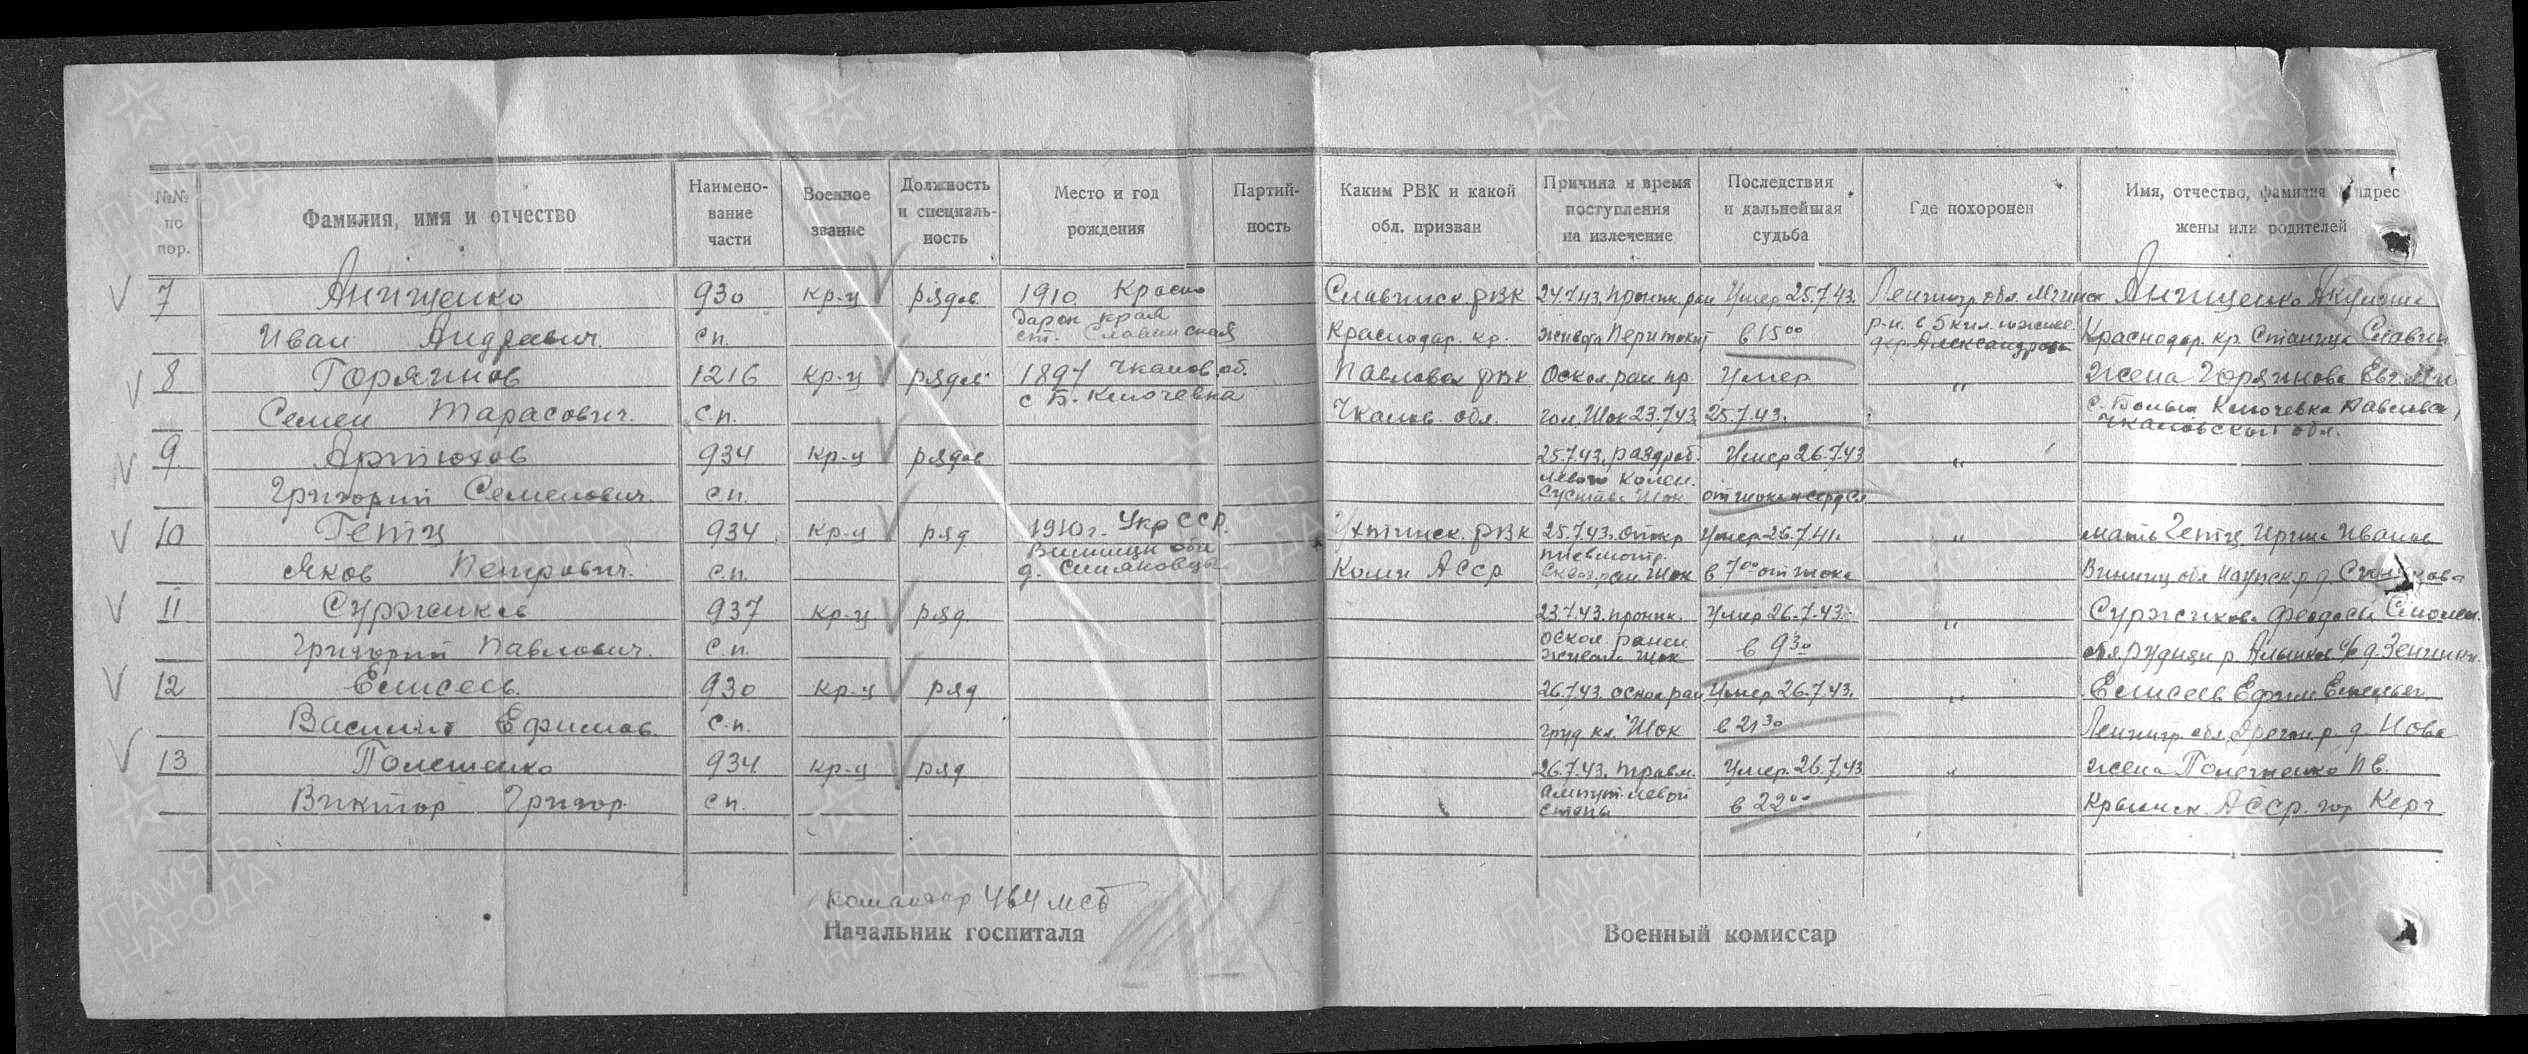 №№ по пор.
Фамилия, имя и отчество
Наимено-вание части
Военное звание
Должность и специаль-ность
Место и год рождения
Партий-ность
Каким РВК и какой обл. призван
Причина и время поступления на излечение
Последствия и дальнейшая судьба
Где похоронен
Имя, отчество, фамилия и адрес жены или родителей
7 Анищенко 930 кр-ц рядов. 1910 Красно Славинск. РВК 24.7.43. проник. ран Умер 25.7.43. Ленингр. обл. Мгинск Анищенко
дарск край
Иван Андреевич. сп. ст. Славинская Краснодар. кр. живота Перитонит в 15⁰⁰ р-н. в 5 км. южнее Краснодар. кр. Станица Славин
дер. Александровка
8 Горяинов 1216 кр-ц рядов. 1897 Чкалов об. Павловск РВК Оскол. ран пр. Умер " Жена Горяинова Евг.
с Б. Ключевка
Семен Тарасович. с.п. Чкалов. обл. гол. Шок 23.7.43 25.7.43. с. Больш Ключевка Павловск,
Чкаловской обл.
9 Артюхов 934 кр-ц рядов 25.7.43. раздроб. Умер 26.7.43 "
левого колен.
Григорий Семенович. с.п. сустава Шок от шока и сердца
10 Гетц 934 кр-ц ряд 1910 г. Укр ССР. Ухтинск. РВК 25.7.43. откр Умер 26.7.41. " мать Гетц Ирина Иванов
Винницк обл пневмотр.
Яков Петрович. с.п. д. Коми АССР Шок в 7⁰⁰ от шока Винниц обл
11 Суржиков 937 кр-ц ряд. 23.7.43. проник. Умер 26.7.43. " Суржикова Феодосья Смолен.
оскол. ранен
Григорий Павлович. с.п. живота Шок в 9³⁰
12 Елисеев. 930 кр-ц ряд 26.7.43. оскол ран Умер 26.7.43. " Елисеев Ефим
Василий Ефимов. с.п. груд кл. Шок в 21³⁰ Ленингр. обл. д. Нова
13 Полещенко 934 кр-ц ряд 26.7.43. травм. Умер. 26.7.43 " жена Полещенко
ампут. левой
Виктор Григор. с.п. стопы в 22⁰⁰ Крымск. АССР. гор Керч
Командир 464 мсб
Начальник госпиталя Военный комиссар
ПАМЯТЬ НАРОДА